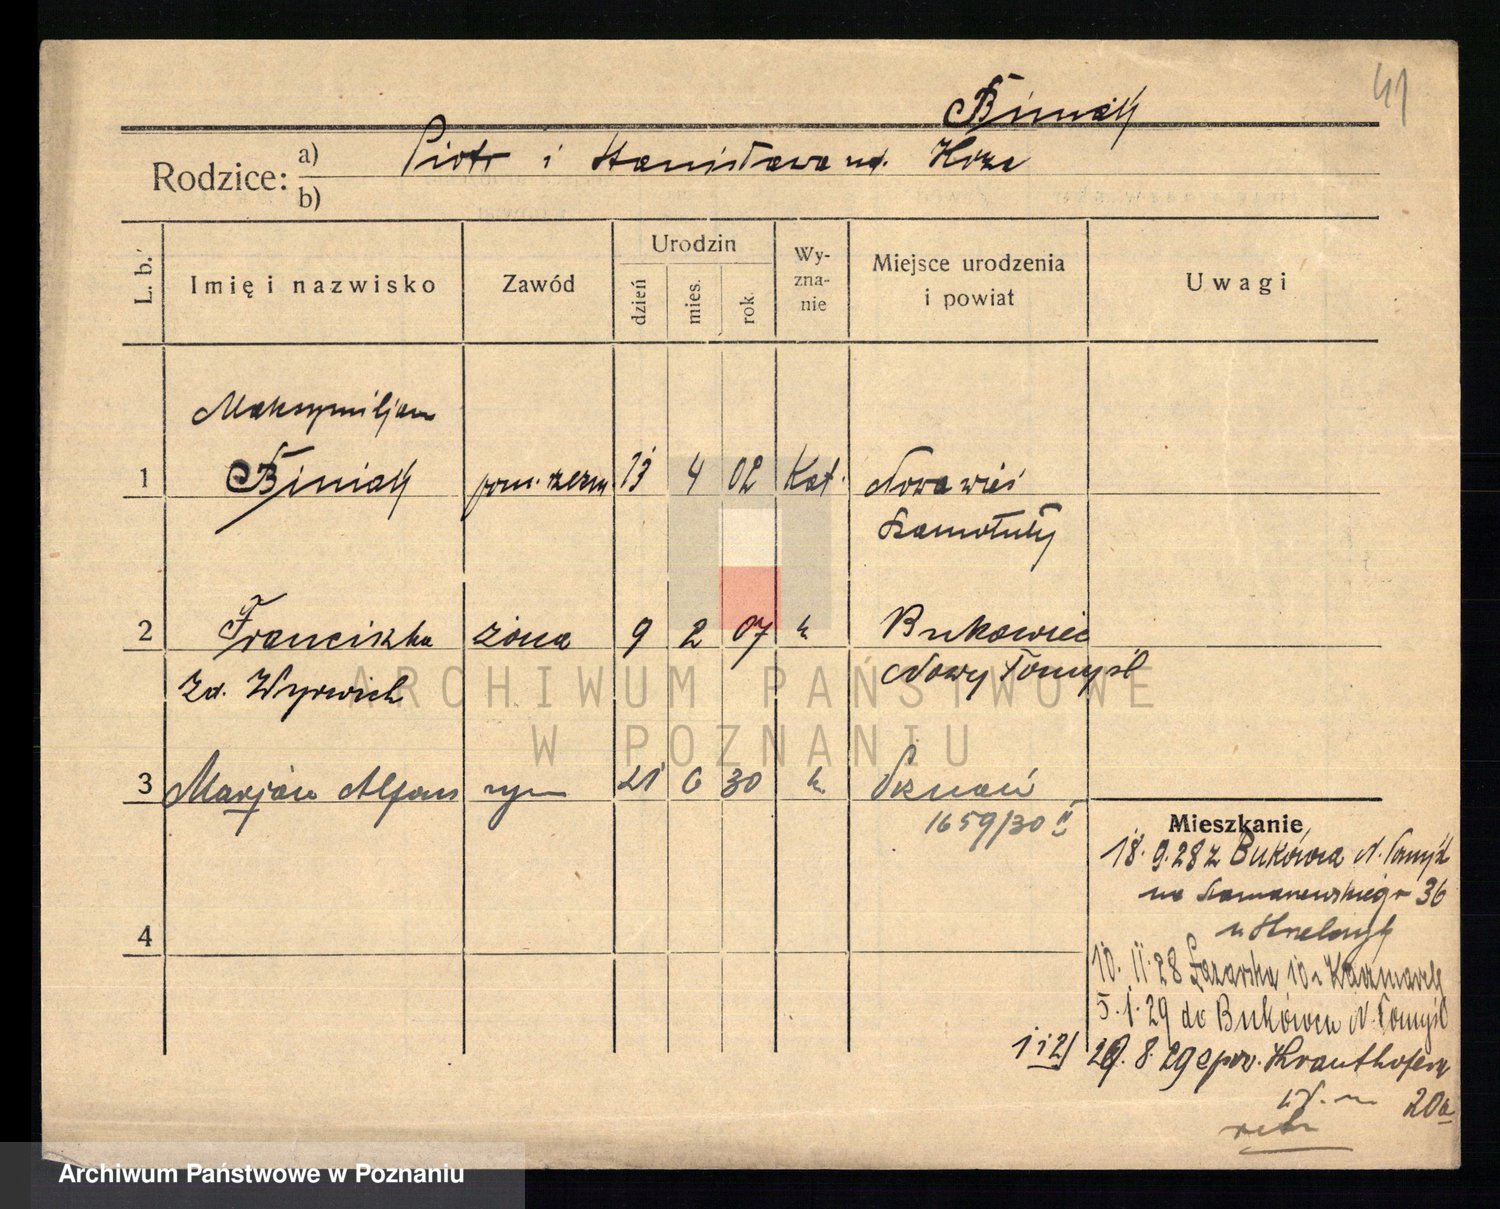 41
Biniak
Rodzice: a) Piotr i Stanisława ur. Koza
b)
L. b. Imię i nazwisko Zawód Urodzin dzień mies. rok Wyznanie Miejsce urodzenia i powiat Uwagi
Maksymiljan
1 Biniak pom. 13 4 02 Kat. Nowawieś
Szamotuły
2 Franciszka żona 9 2 07 k Bukowiec
zd. Wyrwich Nowy Tomyśl
3 Marjan Alfons syn 21 6 30 k Poznań
1659/30 II
Mieszkanie
18.9.28 z Bukówca N. Tomyśl
na 36
u
4
10.11.28 Łazarska 10 u Kaczmarek
5.1.29 do Bukówca N. Tomyśl
1 i 2) 29.8.29 Krauthofera
20a
ARCHIWUM PAŃSTWOWE
W POZNANIU
Archiwum Państwowe w Poznaniu